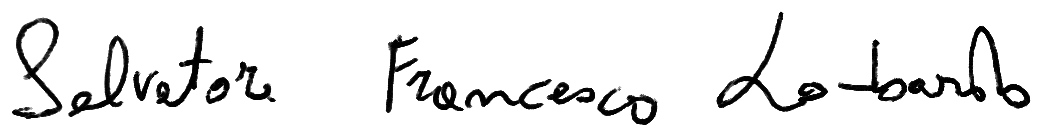 Salvatore Francesco Lombardo